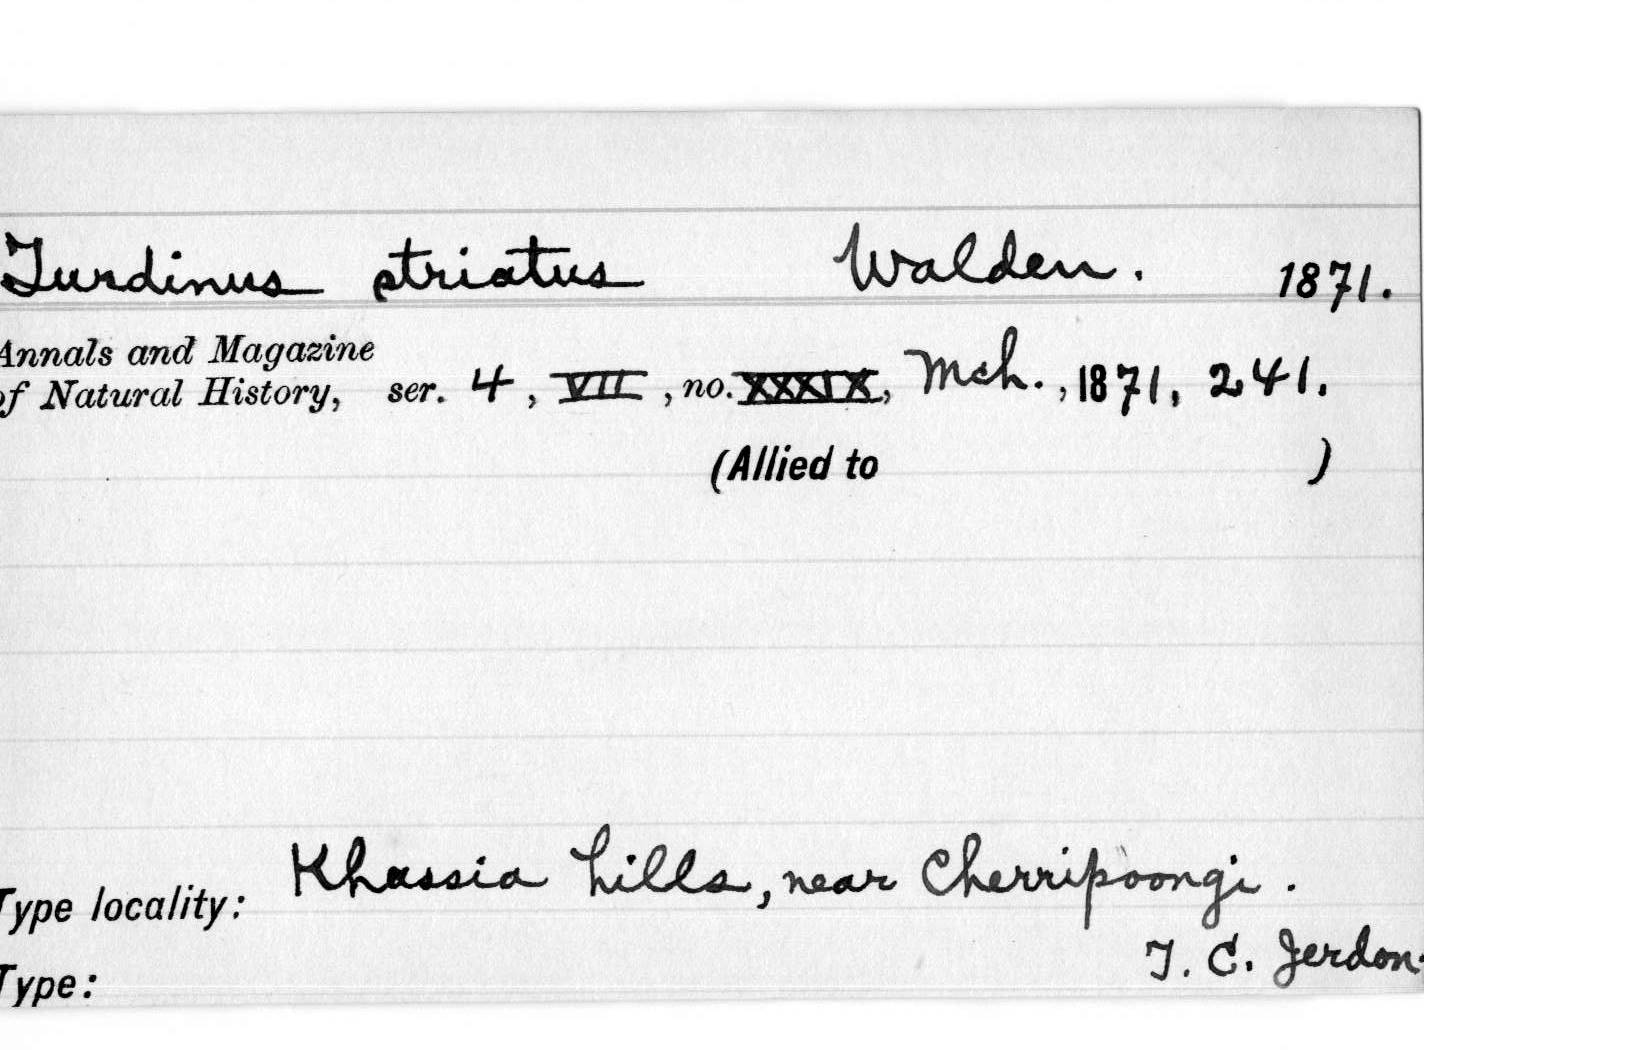 Turdinus striatus Walden. 1871.
Annals and Magazine
of Natural History, ser. 4, VII, no. XXXIX, Mch., 1871, 241.
(Allied to )
Type locality: Khassia hills, near Cherripoongi.
T. C. Jerdon.
Type: